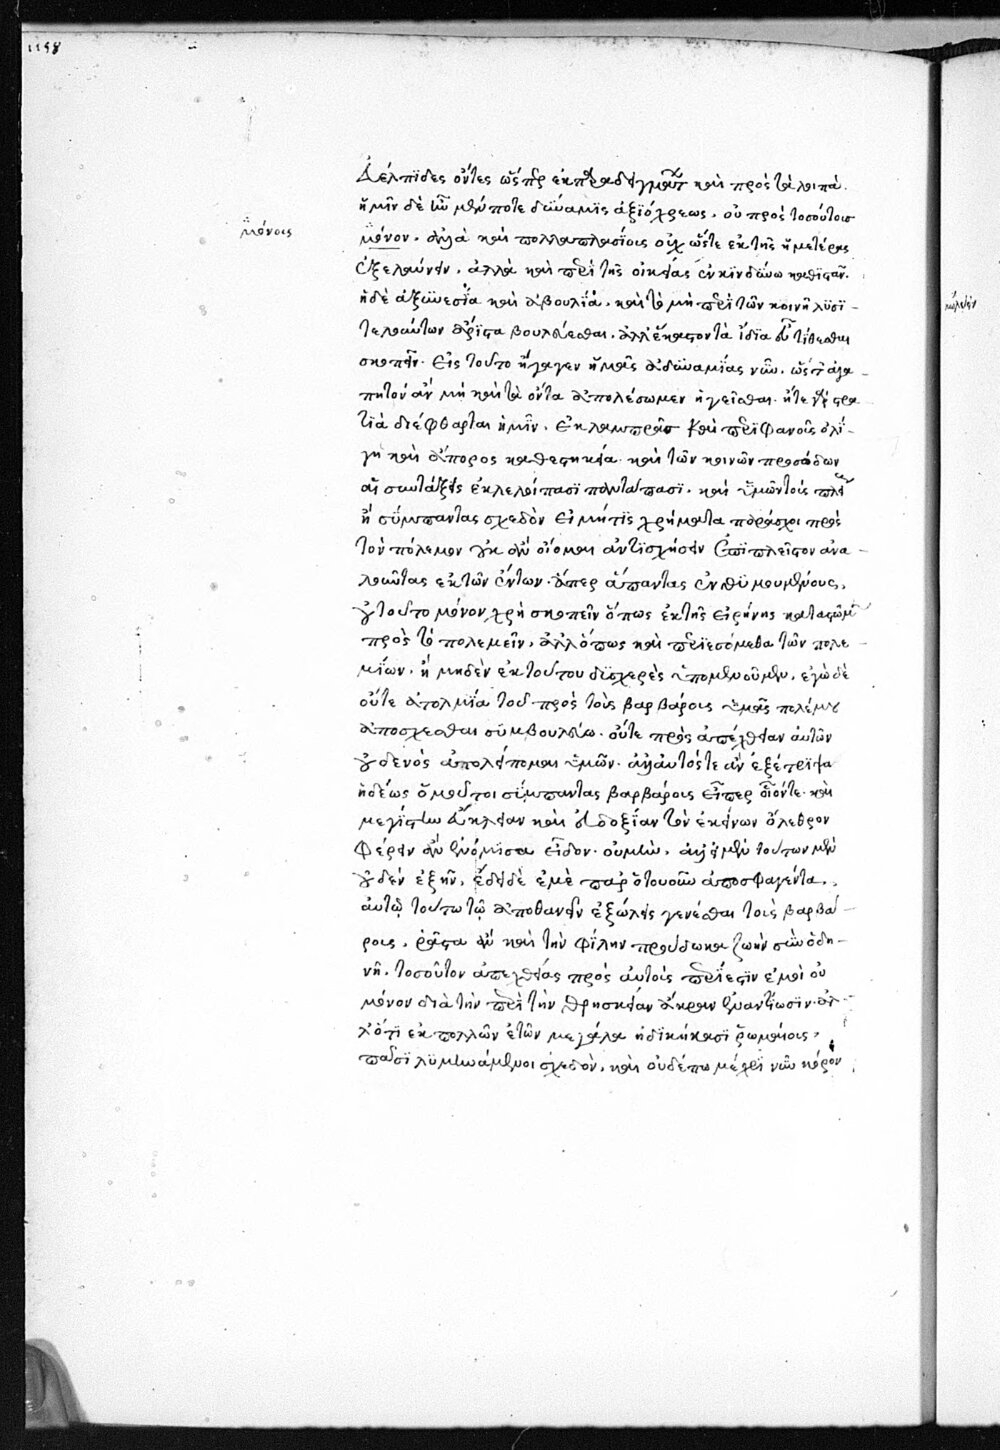 1158
δέλπϊδες ὄντες ὥσπερ ἐκ παραδείγματος καὶ πρὸς τὰ λοιπά.
ἡμῖν δὲ ἦν μὲν ποτε δύναμϊς ἀξϊόχρεως, οὐ πρὸς τοσούτοισ
μόνοις
μόνον, ἀλλὰ καὶ πολλαπλασίοις οὐχ ὥστε ἐκ τῆς ἡμετέρας
ἐξελαύνειν, ἀλλὰ καὶ περὶ τῆς οἰκείας ἐν κϊνδύνω καθϊστάν.
ἡ δὲ ἀξυνεσία καὶ ἀβουλία, καὶ τὸ μὴ περὶ τῶν κοινῆ λυσϊ-
τελούντων ἄρϊστα βουλεύεσθαι, ἀλλ' ἕκαστον τὰ ἴδϊα εὖ τίθεσθαι
σκοπεῖν. εἰς τοῦτο ἤγαγεν ἡμᾶς ἀδυναμίας νῦν, ὥστ' ἀγα-
πητόν ἂν μὴ καὶ τὰ ὄντα ἀπολέσωμεν ἡγεῖσθαι. ἥτε γὰρ στρα
τϊὰ διέφθαρται ἡμῖν, ἐκ λαμπρᾶσ καὶ περϊφανοῦς ὀλί-
γη καὶ ἄπορος καθεστηκεῖα. καὶ τῶν κοινῶν προσόδων
αἱ συντάξεις ἐκλελοίπασϊ πανταπασϊ. καὶ ὑμῶν τοῖς
ἢ σύμπαντας σχεδὸν εἰ μή τϊς χρήματα παράσχοι πρὸς
τὸν πόλεμον οὐκ ἂν οἴομαι ἀντϊσχήσειν ἐπϊπλεῖστον ἀνα-
λοῦντας ἐκ τῶν ὄντων. ἅπερ ἅπαντας ἐνθϋμουμένους,
οὐ τοῦτο μόνον χρὴ σκοπεῖν ὅπως ἐκ τῆς εἰρήνης καταστῶμεν
πρὸς τὸ πολεμεῖν, ἀλλ' ὅπως καὶ περϊεσόμεθα τῶν πολε-
μίων, ἢ μηδὲν ἐκ τούτου δϋσχερὲς ὑπομενοῦμεν. ἐγὼ δὲ
οὔτε ἀτολμία τοῦ πρὸς τοὺς βαρβάροις ὑμᾶς πολέμου
ἀποσχέσθαι συμβουλεύω. οὔτε πρὸς ἀπέχθειαν αὐτῶν
οὐδενὸς ἀπολείπομαι ὑμῶν. ἀλλ' αὐτός τε ἂν ἐξέτρϊψα
ἡδέως ὁμοῦ τοι σύμπαντας βαρβάροις εἴπερ οἷόντε. καὶ
μεγίστην εὔκλειαν καὶ εὐδοξίαν τὸν ἐκείνων ὄλεθρον
φέρειν ἂν ἐνόμϊσα εἶδον. οὐ μὴν, ἀλλ' εἰ μὲν τούτων μὲν
οὐδὲν ἐξῆν, ἔδει δὲ ἐμὲ παρ' ὁτουοῦν ἀποσφαγέντα,
αὐτῷ τούτω τῷ ἀποθανεῖν ἐξώλεις γενέσθαι τοὶς βαρβά-
ροις, ῥᾷστα ἂν καὶ τὴν φίλην προύδωκα ζωὴν σὺν ὀδύ-
νῃ. τοσοῦτον ἀπεχθείας πρὸς αὐτοὺς περίεστϊν ἐμοὶ οὐ
μόνον διὰ τὴν περὶ τὴν θρησκείαν ἄκραν ἐναντίωσϊν. ἀλ-
λ' ὅτϊ ἐκ πολλῶν ἐτῶν μεγάλα ἠδϊκήκασϊ ῥωμαίοις,
πᾶσϊ λϋμηνάμενοι σχεδὸν, καὶ οὐδέπω μέχρϊ νῦν κόρον